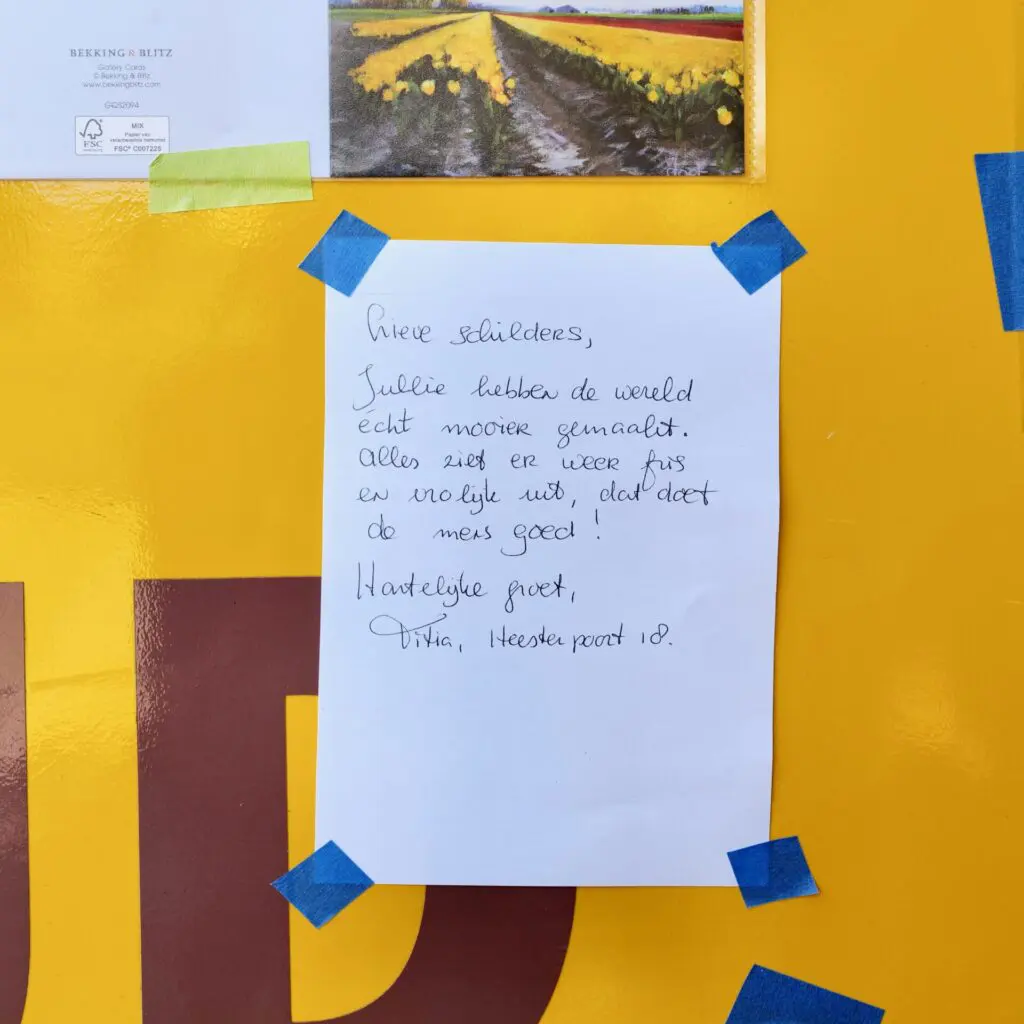 BEKKING & BLITZ
Gallery Cards
© Bekking & Blitz
www.bekkingblitz.com
G4252094
FSC
MIX
Papier van
verantwoorde herkomst
FSC® C007225
Lieve schilders,
Jullie hebben de wereld
écht mooier gemaakt.
Alles ziet er weer fris
en vrolijk uit, dat doet
de mens goed!
Hartelijke groet,
Titia, Heesterpoort 18.
D